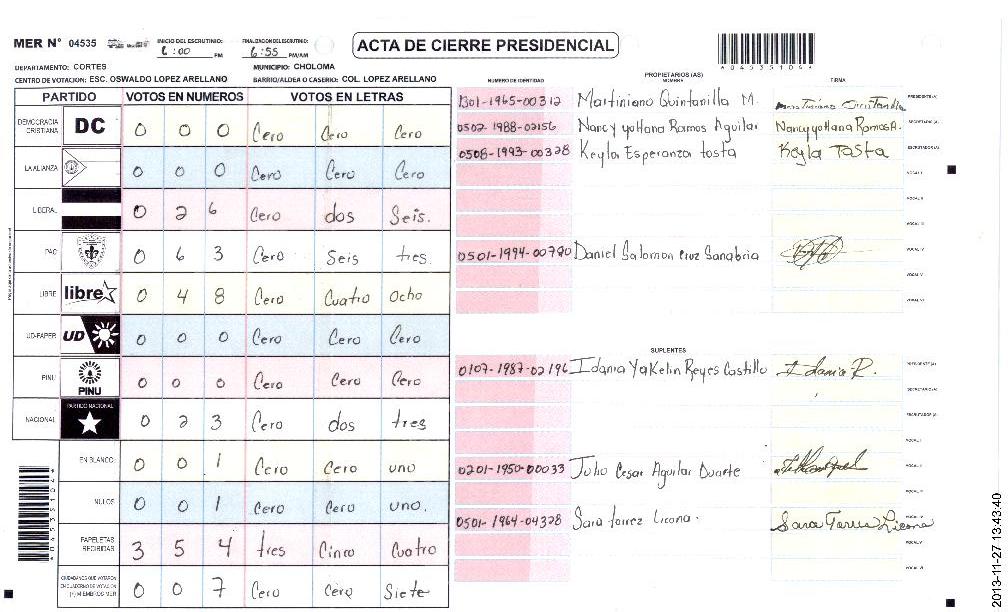 MER N° 04535 INICIO DEL ESCRUTINIO: 6:00 PM FINALIZACION DEL ESCRUTINIO: 6:55 PM/AM ACTA DE CIERRE PRESIDENCIAL *04535104*
DEPARTAMENTO: CORTES MUNICIPIO: CHOLOMA
CENTRO DE VOTACION: ESC. OSWALDO LOPEZ ARELLANO BARRIO/ALDEA O CASERIO: COL. LOPEZ ARELLANO
PARTIDO VOTOS EN NUMEROS VOTOS EN LETRAS
DEMOCRACIA CRISTIANA DC 0 0 0 Cero Cero Cero
LA ALIANZA 0 0 0 Cero Cero Cero
LIBERAL 0 2 6 Cero dos Seis.
PAC 0 6 3 Cero Seis tres.
LIBRE libre 0 4 8 Cero Cuatro Ocho
UD-FAPER UD 0 0 0 Cero Cero Cero
PINU PINU 0 0 0 Cero Cero Cero
NACIONAL PARTIDO NACIONAL 0 2 3 Cero dos tres
EN BLANCO 0 0 1 Cero Cero uno
NULOS 0 0 1 Cero Cero uno.
PAPELETAS RECIBIDAS 3 5 4 tres Cinco Cuatro
CIUDADANOS QUE VOTARON EN CUADERNO DE VOTACION (+) MIEMBROS MER 0 0 7 Cero Cero Siete
NUMERO DE IDENTIDAD PROPIETARIOS (AS) NOMBRE FIRMA
1301-1965-00312 Martiniano Quintanilla M. PRESIDENTE (A)
0502-1988-02156 Nancy yohana Ramos Aguilar Nancy yohana Ramos A. SECRETARIO (A)
0508-1993-00328 Keyla Esperanza tosta Keyla Tosta ESCRUTADOR (A)
VOCAL I
VOCAL II
VOCAL III
0501-1994-00790 Daniel Salomon Cruz Sanabria VOCAL IV
VOCAL V
VOCAL VI
SUPLENTES
0107-1987-02196 Idania Yakelin Reyes Castillo Idania R. PRESIDENTE (A)
SECRETARIO (A)
ESCRUTADOR (A)
VOCAL I
0201-1950-00033 Julio Cesar Aguilar Duarte VOCAL II
VOCAL III
0501-1964-04328 Sara torrez Licona. Sara Torres Licona VOCAL IV
VOCAL V
VOCAL VI
*04535104*
2013-11-27 13:43:40